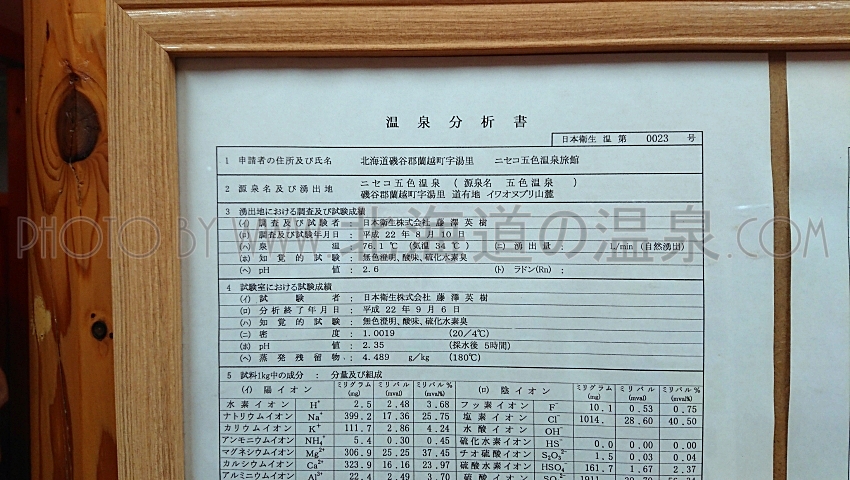 温泉分析書
日本衛生 温 第 0023 号
1 申請者の住所及び氏名 北海道磯谷郡蘭越町字湯里 ニセコ五色温泉旅館
2 源泉名及び湧出地 ニセコ五色温泉 ( 源泉名 五色温泉 )
磯谷郡蘭越町字湯里 道有地 イワオヌプリ山麓
3 湧出地における調査及び試験成績
(イ) 調査及び試験者 : 日本衛生株式会社 藤澤 英樹
(ロ) 調査及試験年月日 : 平成 22年 8月 10日
(ハ) 泉温 : 76.1 ℃ (気温 34 ℃) (ニ) 湧出量 : L/min (自然湧出)
(ホ) 知覚的試験 : 無色澄明、酸味、硫化水素臭
(ヘ) pH 値 : 2.6 (ト) ラドン(Rn) :
4 試験室における試験成績
(イ) 試験者 : 日本衛生株式会社 藤澤 英樹
(ロ) 分析終了年月日 : 平成 22年 9月 6日
(ハ) 知覚的試験 : 無色澄明、酸味、硫化水素臭
(ニ) 密度 : 1.0019 (20/4℃)
(ホ) pH 値 : 2.35 (採水後 5時間)
(ヘ) 蒸発残留物 : 4.489 g/kg (180℃)
5 試料1kg中の成分 : 分量及び組成
(イ) 陽イオン ミリグラム(mg) ミリバル(mval) ミリバル%(mval%) (ロ) 陰イオン ミリグラム(mg) ミリバル(mval) ミリバル%(mval%)
水素イオン H⁺ 2.5 2.48 3.68 フッ素イオン F⁻ 10.1 0.53 0.75
ナトリウムイオン Na⁺ 399.2 17.36 25.75 塩素イオン Cl⁻ 1014. 28.60 40.50
カリウムイオン K⁺ 111.7 2.86 4.24 水酸イオン OH⁻
アンモニウムイオン NH₄⁺ 5.4 0.30 0.45 硫化水素イオン HS⁻ 0.0 0.00 0.00
マグネシウムイオン Mg²⁺ 306.9 25.25 37.45 チオ硫酸イオン S₂O₃²⁻ 1.5 0.03 0.04
カルシウムイオン Ca²⁺ 323.9 16.16 23.97 硫酸水素イオン HSO₄⁻ 161.7 1.67 2.37
アルミニウムイオン Al³⁺ 22.4 2.49 3.70 硫酸イオン
PHOTO BY WWW.北海道の温泉.COM